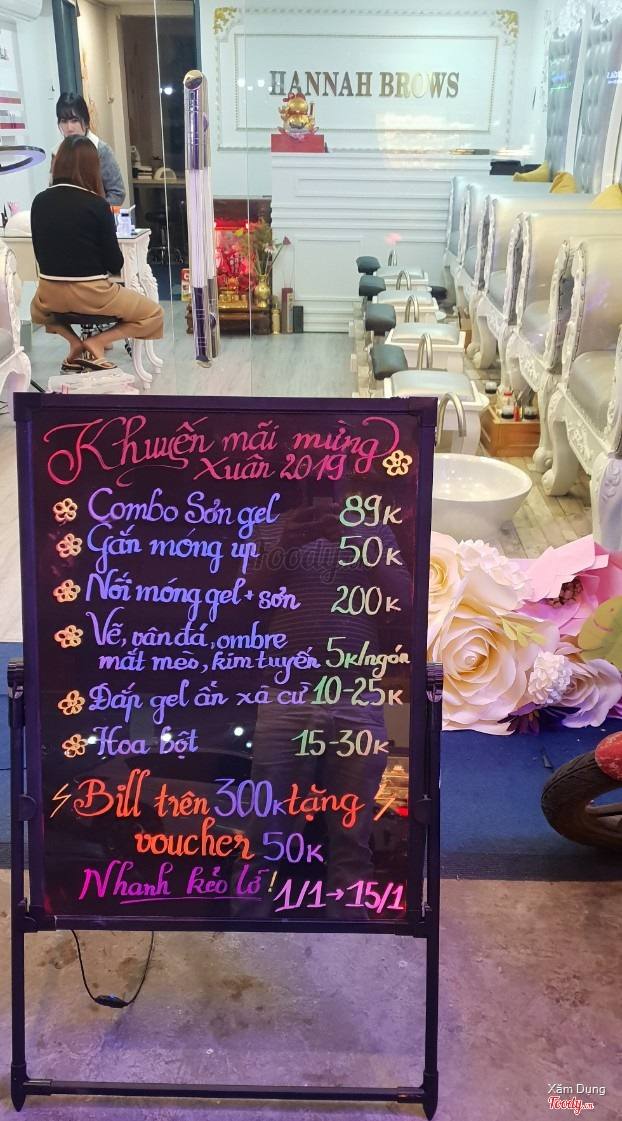 HANNAH BROWS
Khuyến mãi mừng
xuân 2019
Combo Sơn gel 89K
Gắn móng úp 50K
Nối móng gel + sơn 200K
Vẽ, vân đá, ombre
mắt mèo, kim tuyến 5K/ngón
Đắp gel ẩn xà cừ 10-25K
Hoa bột 15-30K
Bill trên 300K tặng
voucher 50K
Nhanh kẻo lỡ! 1/1→15/1
Foody.vn
Xăm Dung
Foody.vn